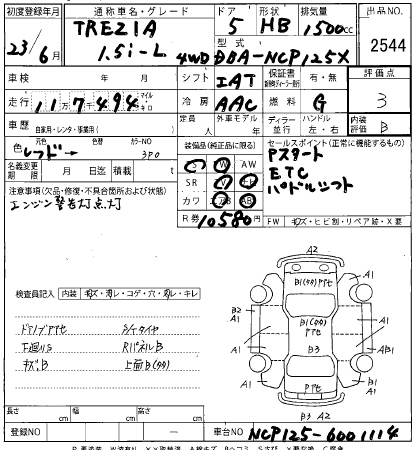 初度登録年月 通称車名・グレード ドア 形状 排気量 出品NO.
23/6月 TREZIA 5 HB 1500cc 2544
1.5i-L 4WD 型式 DBA-NCP125X
車検 年 月 シフト IAT 保証書 有・無 評価点
走行 117494 マイル キロ 冷房 AAC 燃料 G 3
車歴 自家用・レンタ・事業用( ) 定員 人 外車モデル 年 ディーラー 並行 ハンドル 左・右 内装評価 B
色 レッド→ 色替 カラーNO 3P0 装備品(純正品に限る) セールスポイント(正常に機能するもの)
名義変更期限 月 日迄 積載 t S W AW Pスタート
注意事項(欠品・修復・不具合箇所および状態) SR ETC
エンジン警告灯点灯 カワ エアB AB パドルシフト
R券 10580円 FW キズ・ヒビ割・リペア跡・X要
検査員記入 内装 キズ・汚レ・コゲ・穴・ヌレ・キレ
ドノブアサセ S/ケタイヤ
下廻りS RパネルB
キズB 上面B(タタ)
A2
B1(タタ)アサセ
A1 A1
B2 A1 B1(タタ) アサセ A1
A1 B3 AB1
B1 A1
A1 アサセ A1
B3 A2
長さ cm 幅 cm 高さ cm
登録NO ー 車台NO NCP125-6001114